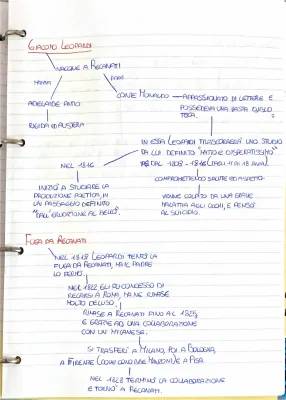 GIACOMO LEOPARDI
NACQUE A RECANATI
MAMMA
PAPÀ
ADELAIDE ANTICI
CONTE MONALDO
APPASSIONATO DI LETTERE E
POSSEDEVA UNA VASTA BIBLIO
TECA.
RIGIDA ED AUSTERA
IN ESSA LEOPARDI TRASCORRERÀ UNO STUDIO
DA LUI DEFINITO "MATTO E DISPERATISSIMO"
DAL 1808 - 1816 (DAGLI 11 AI 18 ANNI).
NEL 1816
COMPROMETTENDO SALUTE ED ASPETTO.
INIZIÒ A STUDIARE LA
PRODUZIONE POETICA, IN
UN PASSAGGIO DEFINITO
"DALL'ERUDIZIONE AL BELLO".
VENNE COLPITO DA UNA GRAVE
MALATTIA AGLI OCCHI, E PENSÒ
AL SUICIDIO.
FUGA DA RECANATI
NEL 1819 LEOPARDI TENTÒ LA
FUGA DA RECANATI, MA IL PADRE
LO FERMÒ.
NEL 1822 GLI FU CONCESSO DI
RECARSI A ROMA, MA NE RIMASE
MOLTO DELUSO.
RIMASE A RECANATI FINO AL 1825,
E GRAZIE AD UNA COLLABORAZIONE
CON UN MILANESE.
SI TRASFERÌ A MILANO, POI A BOLOGNA,
A FIRENZE (DOVE CONOBBE MANZONI) E A PISA.
NEL 1828 TERMINÒ LA COLLABORAZIONE
E TORNÒ A RECANATI.